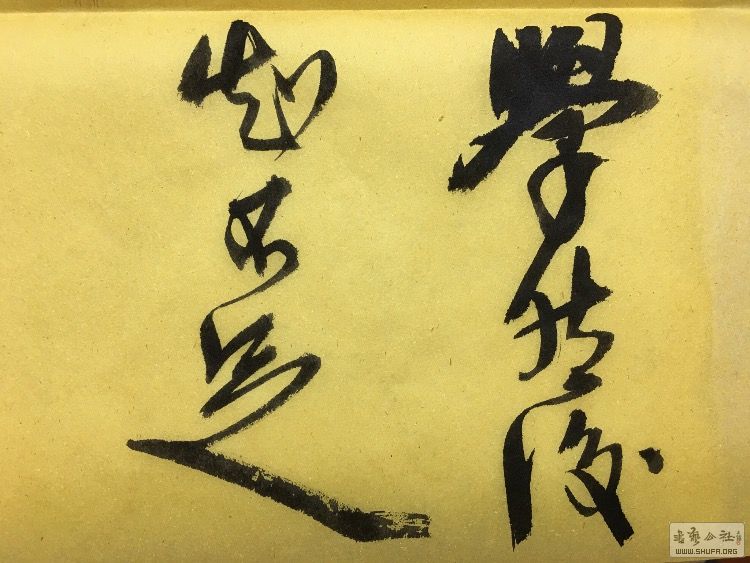 學然後
知不足
书艺公社
WWW.SHUFA.ORG